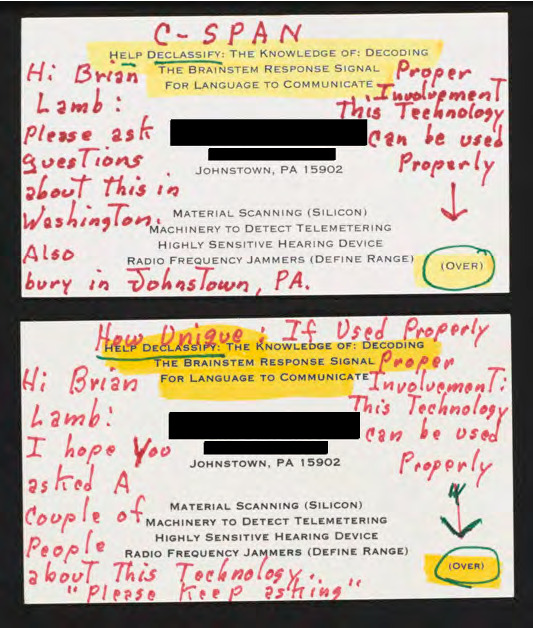 C-SPAN
HELP DECLASSIFY: THE KNOWLEDGE OF: DECODING
THE BRAINSTEM RESPONSE SIGNAL
FOR LANGUAGE TO COMMUNICATE
Hi Brian
Lamb:
Please ask
questions
about this in
Washington.
Also
bury in Johnstown, PA.
Proper
Involvement
This Technology
can be used
Properly
JOHNSTOWN, PA 15902
MATERIAL SCANNING (SILICON)
MACHINERY TO DETECT TELEMETERING
HIGHLY SENSITIVE HEARING DEVICE
RADIO FREQUENCY JAMMERS (DEFINE RANGE)
(OVER)
How Unique: If Used Properly
HELP DECLASSIFY: THE KNOWLEDGE OF: DECODING
THE BRAINSTEM RESPONSE SIGNAL
FOR LANGUAGE TO COMMUNICATE
Hi Brian
Lamb:
I hope You
asked A
Couple of
People
about This Technology.
"Please Keep asking"
Proper
Involvement:
This Technology
can be used
Properly
JOHNSTOWN, PA 15902
MATERIAL SCANNING (SILICON)
MACHINERY TO DETECT TELEMETERING
HIGHLY SENSITIVE HEARING DEVICE
RADIO FREQUENCY JAMMERS (DEFINE RANGE)
(OVER)